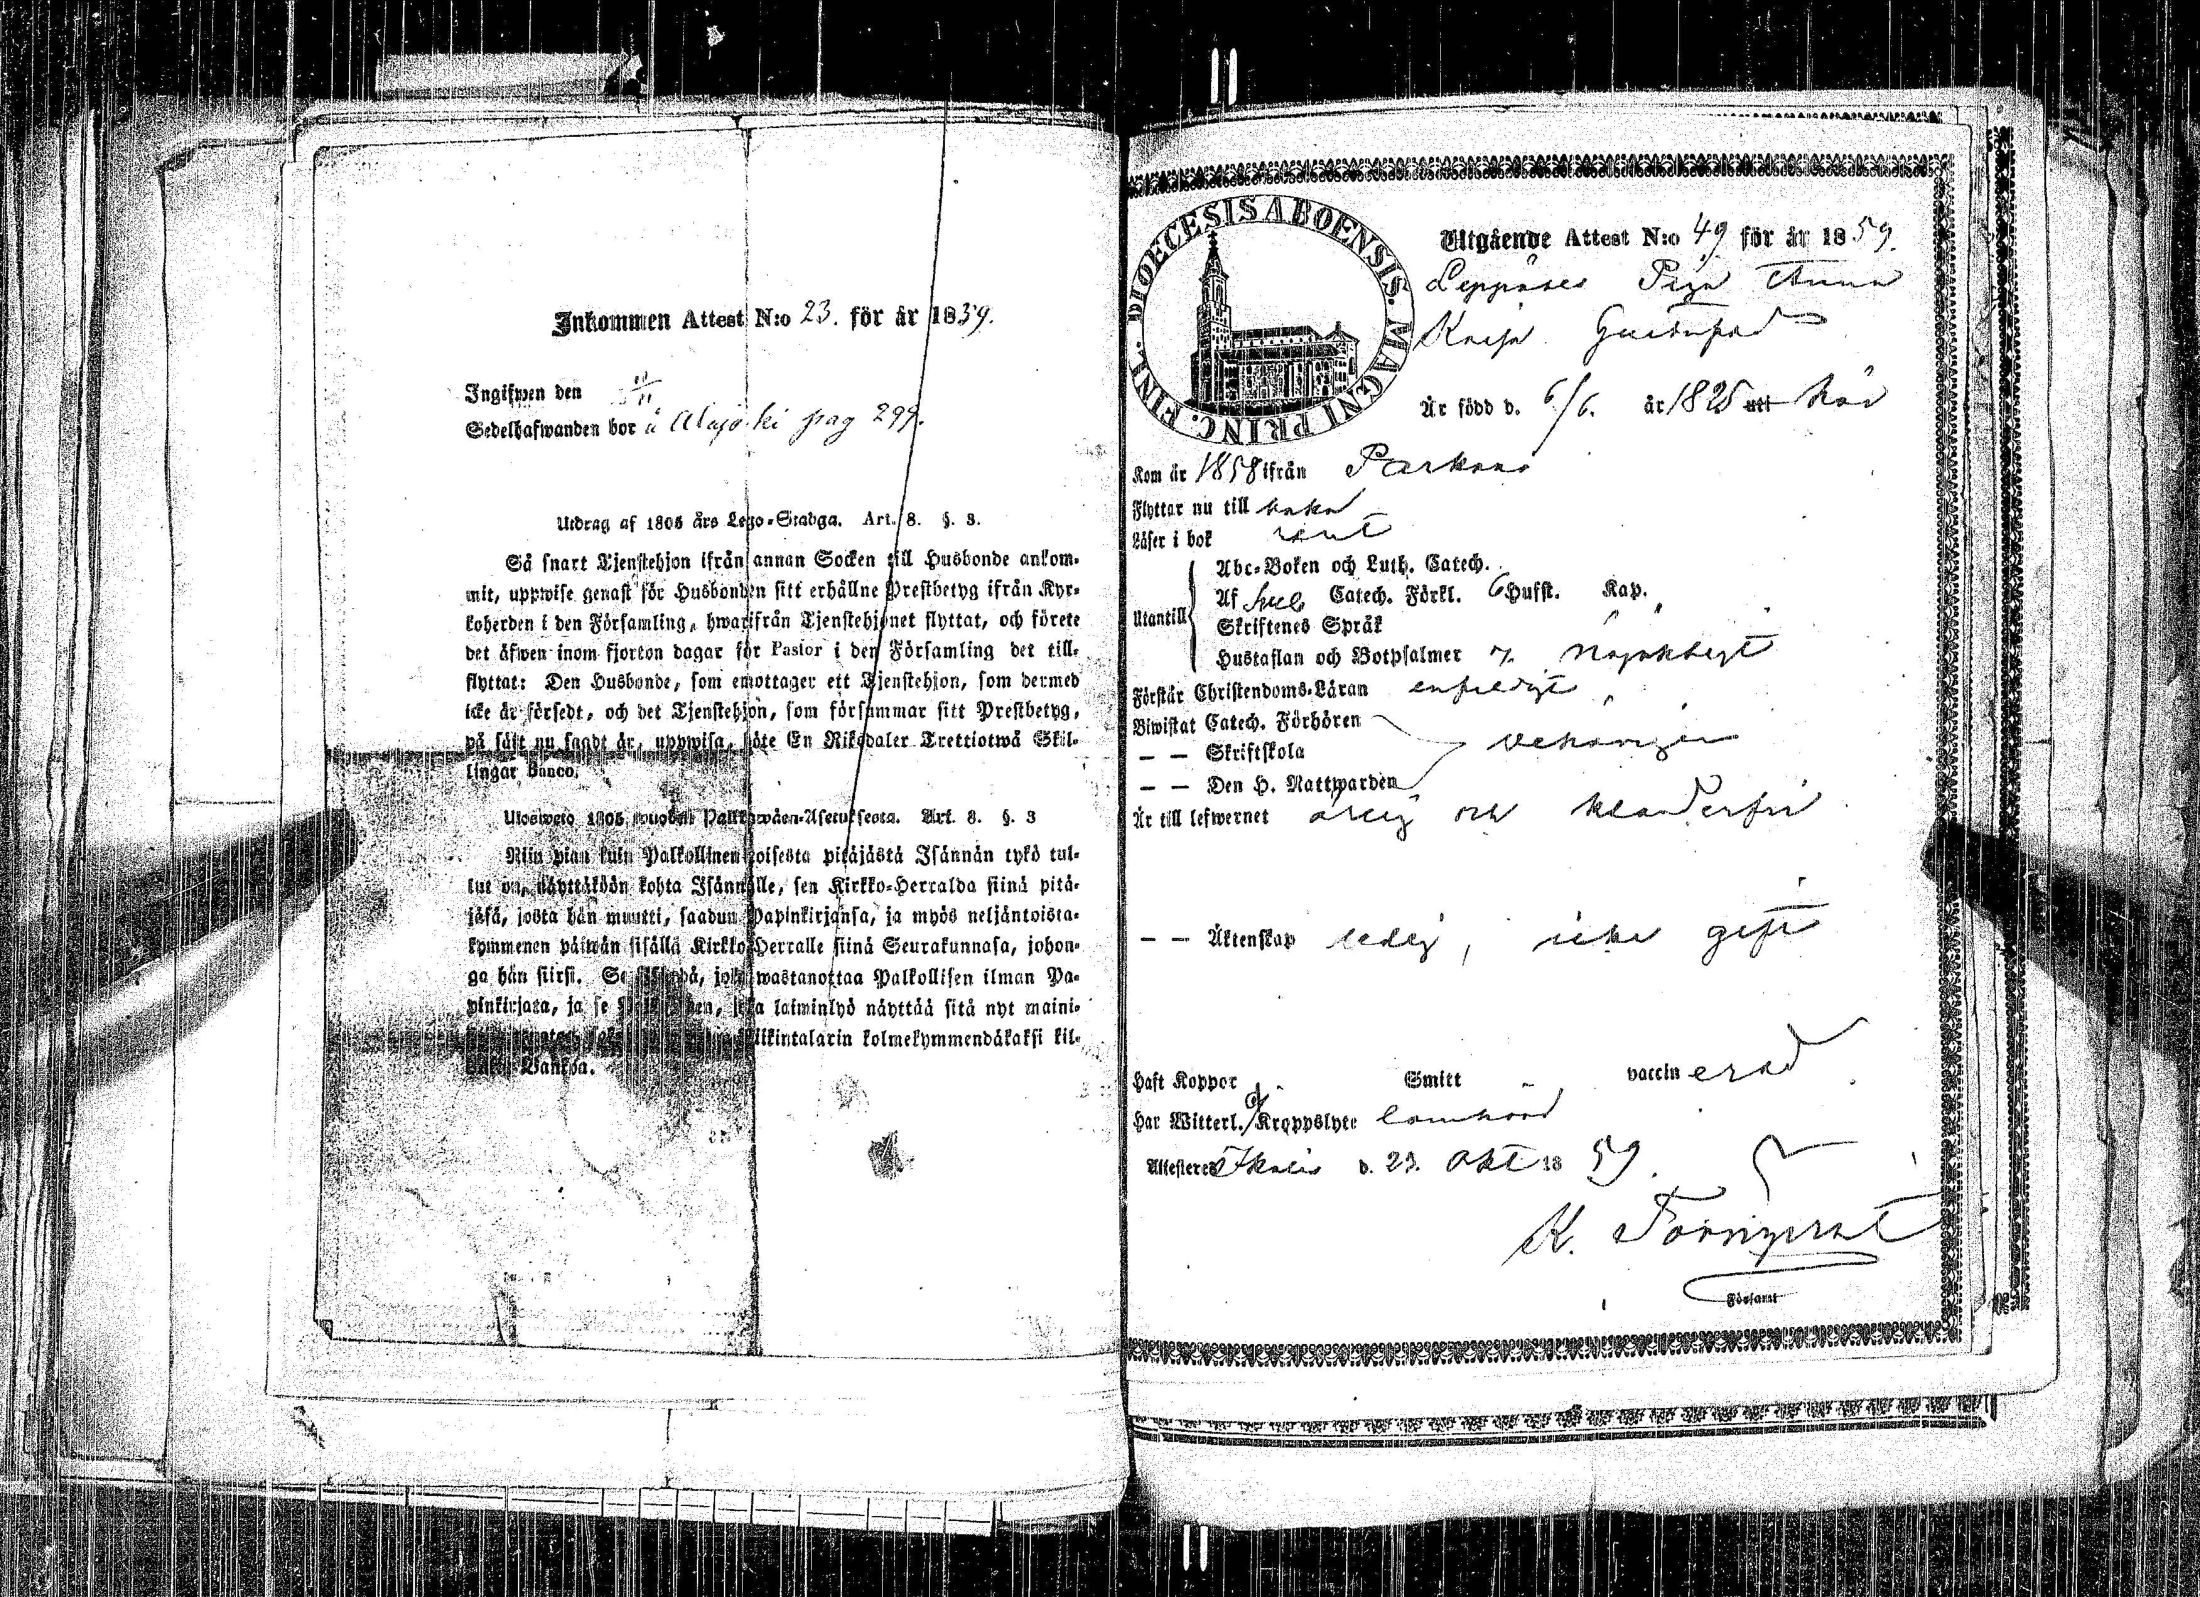 Inkommen Attest N:o 23. för år 1859.
Ingifwen den 11/11
Sedelhafwanden bor å Alajoki pag 299.
Utdrag af 1805 års Lego-Stadga. Art. 8. §. 3.
Så snart Tjenstehjon ifrån annan Socken till Husbonde ankom-
mit, uppwise genast för Husbonden sitt erhållne Prestbetyg ifrån Kyr-
koherden i den Församling, hwarifrån Tjenstehjonet flyttat, och förete
det äfwen inom fjorton dagar för Pastor i den Församling det till-
flyttat: Den Husbonde, som emottager ett Tjenstehjon, som dermed
icke är försedt, och det Tjenstehjon, som försummar sitt Prestbetyg,
på sätt nu sagdt är, uppwisa, böte En Riksdaler Trettiotwå Skil-
lingar Banco.
Ulosweto 1805 wuoden Palkkawäen-Asetuksesta. Art. 8. §. 3
Niin pian kuin Palkollinen toisesta pitäjästä Isännän tykö tul-
lut on, näyttäköön kohta Isännälle, sen Kirkko-Herralda siinä pitä-
jäsä, josta hän muutti, saadun Papinkirjansa, ja myös neljäntoista-
kymmenen päiwän sisällä Kirkko-Herralle siinä Seurakunnasa, johon-
ga hän siirsi. Se Isändä, joka wastanottaa Palkollisen ilman Pa-
pinkirjata, ja se Palkollinen, joka laiminlyö näyttää sitä nyt maini-
Riikintalarin kolmekymmendäkaksi kil-
Bankoa.
DIOECESIS ABOENSIS. MAGNI PRINC. FINL.
Utgående Attest N:o 49 för år 1859.
Leppäses Piga Anna
Kaisa Gustafsd
Är född d. 6/6. år 1825 utt här
Kom år 1858 ifrån Parkano
Flyttar nu till
Läser i bok rent
Utantill
Abc-Boken och Luth. Catech.
Af Sveb Catech. Förkl. 6 Hufst. Kap.
Skriftenes Språk
Hustaflan och Botpsalmer 7. Nöjaktigt
Förstår Christendoms-Läran enfeldigt
Biwistat Catech. Förhören
— — Skriftskola behörigen
— — Den H. Nattwarden
Är till lefwernet ärlig och klanderfri
— — Äktenskap ledig, icke gift
Haft Koppor Smitt vaccinerad
Har Witterl. Kroppslyte
Attesteres Ikalis d. 29. Okt 1859.
K. Törnqvist
Församl